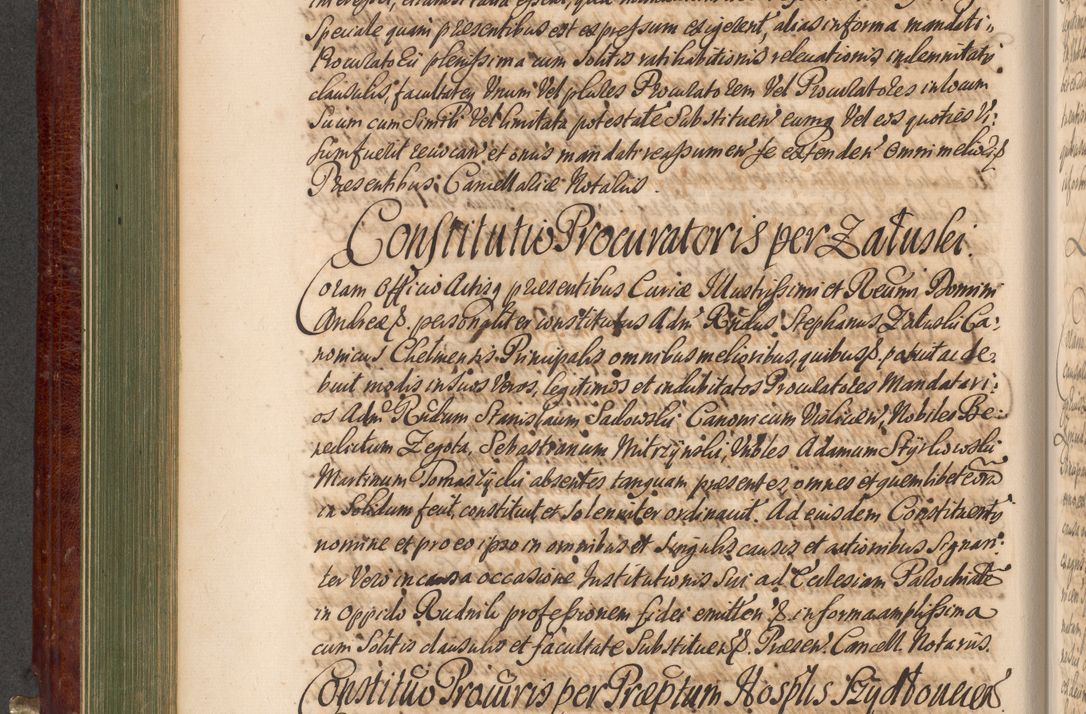 Speciale quam praesentibus est expressum exigerent, alias in forma mandati
Procuratorii plenissima cum solitis ratihabitionis relevationis indemnitatis
clausulis, facultatez Unum Vel plures Procuratorem Vel Procuratores in locum
Suum cum Simili Vel limitata potestate Substituen eumq Vel eos quoties Vi:
sum fuerit revocan et onus mandati reassumen se extenden Omni meliori
Praesentibus Cancellariae Notariis.
Constitutio Procuratoris per Załuski.
Coram Officio Actisq praesentibus Curiae Illustrissimi et Reumi Domini
Andreae personaliter constitutus Admr Rndus Stephanus Załuski Ca:
nonicus Chelmensis Principalis omnibus melioribus, quibus potuit ac de:
buit modis in Suos Veros, legitimos et indubitatos Procuratores Mandatari:
os Admr Rndum Stanislaum Sadowski Canonicum Vislicien, Nobiles Be:
nedictum Zegota, Sebastianum Mitrzynski, Nobles Adamum Styrkowski
Martinum Tomaszycki absentes tanquam praesentes, omnes et quemlibet eorum
in Solidum fecit, constituit, et Solenniter ordinavit. Ad eiusdem Constituentis
nomine et pro eo ipso in omnibus et Singulis causis et actionibus Signan:
ter Vero in causa occasione Institutionis Sui ad Ecclesiam Parochialem
in Oppido Rudnik professionem fidei emitten in forma amplissima
cum Solitis clausulis et facultate Substituen Praesen. Cancell. Notariis.
Constituo Procuris per Praeptum Hosplis